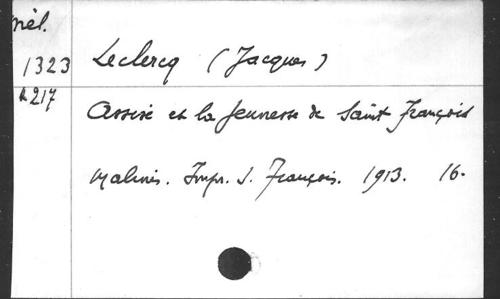 Mél.
1323 Leclercq (Jacques)
A217
Assise et la Jeunesse de Saint François
Malines. Impr. S. François. 1913. 16-